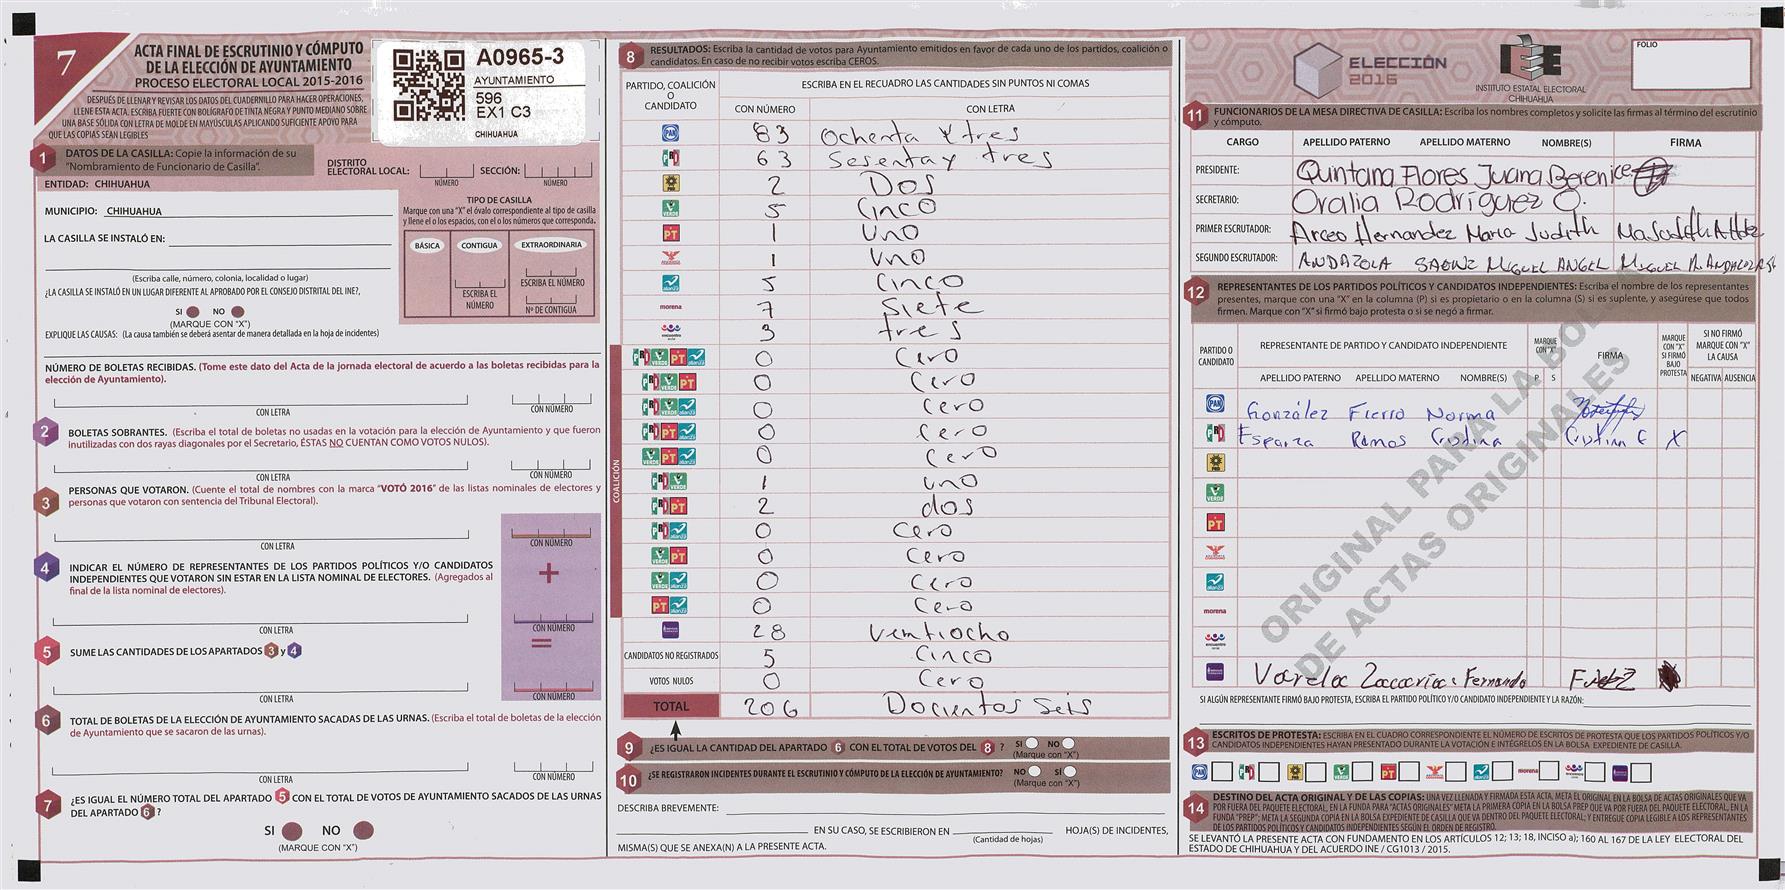 7
ACTA FINAL DE ESCRUTINIO Y CÓMPUTO
DE LA ELECCIÓN DE AYUNTAMIENTO
PROCESO ELECTORAL LOCAL 2015-2016
DESPUÉS DE LLENAR Y REVISAR LOS DATOS DEL CUADERNILLO PARA HACER OPERACIONES,
LLENE ESTA ACTA. ESCRIBA FUERTE CON BOLÍGRAFO DE TINTA NEGRA Y PUNTO MEDIANO SOBRE
UNA BASE SÓLIDA CON LETRA DE MOLDE EN MAYÚSCULAS APLICANDO SUFICIENTE APOYO PARA
QUE LAS COPIAS SEAN LEGIBLES
A0965-3
AYUNTAMIENTO
596
EX1 C3
CHIHUAHUA
1 DATOS DE LA CASILLA: Copie la información de su
"Nombramiento de Funcionario de Casilla".
DISTRITO
ELECTORAL LOCAL:
NÚMERO
SECCIÓN:
NÚMERO
ENTIDAD: CHIHUAHUA
MUNICIPIO: CHIHUAHUA
LA CASILLA SE INSTALÓ EN:
(Escriba calle, número, colonia, localidad o lugar)
¿LA CASILLA SE INSTALÓ EN UN LUGAR DIFERENTE AL APROBADO POR EL CONSEJO DISTRITAL DEL INE?,
SI NO
(MARQUE CON "X")
EXPLIQUE LAS CAUSAS: (La causa también se deberá asentar de manera detallada en la hoja de incidentes)
TIPO DE CASILLA
Marque con una "X" el óvalo correspondiente al tipo de casilla
y llene el o los espacios, con el o los números que corresponda.
BÁSICA CONTIGUA EXTRAORDINARIA
ESCRIBA EL NÚMERO
ESCRIBA EL NÚMERO
Nº DE CONTIGUA
NÚMERO DE BOLETAS RECIBIDAS. (Tome este dato del Acta de la jornada electoral de acuerdo a las boletas recibidas para la
elección de Ayuntamiento).
CON LETRA CON NÚMERO
2 BOLETAS SOBRANTES. (Escriba el total de boletas no usadas en la votación para la elección de Ayuntamiento y que fueron
inutilizadas con dos rayas diagonales por el Secretario, ÉSTAS NO CUENTAN COMO VOTOS NULOS).
CON LETRA CON NÚMERO
3 PERSONAS QUE VOTARON. (Cuente el total de nombres con la marca "VOTÓ 2016" de las listas nominales de electores y
personas que votaron con sentencia del Tribunal Electoral).
CON LETRA CON NÚMERO
+
4 INDICAR EL NÚMERO DE REPRESENTANTES DE LOS PARTIDOS POLÍTICOS Y/O CANDIDATOS
INDEPENDIENTES QUE VOTARON SIN ESTAR EN LA LISTA NOMINAL DE ELECTORES. (Agregados al
final de la lista nominal de electores).
CON LETRA CON NÚMERO
=
5 SUME LAS CANTIDADES DE LOS APARTADOS 3 y 4
CON LETRA CON NÚMERO
6 TOTAL DE BOLETAS DE LA ELECCIÓN DE AYUNTAMIENTO SACADAS DE LAS URNAS. (Escriba el total de boletas de la elección
de Ayuntamiento que se sacaron de las urnas).
CON LETRA CON NÚMERO
7 ¿ES IGUAL EL NÚMERO TOTAL DEL APARTADO 5 CON EL TOTAL DE VOTOS DE AYUNTAMIENTO SACADOS DE LAS URNAS
DEL APARTADO 6 ?
SI NO
(MARQUE CON "X")
8 RESULTADOS: Escriba la cantidad de votos para Ayuntamiento emitidos en favor de cada uno de los partidos, coalición o
candidatos. En caso de no recibir votos escriba CEROS.
PARTIDO, COALICIÓN
O
CANDIDATO
ESCRIBA EN EL RECUADRO LAS CANTIDADES SIN PUNTOS NI COMAS
CON NÚMERO CON LETRA
PAN 83 Ochenta y tres
PRI 63 Sesenta y tres
PRD 2 Dos
VERDE 5 Cinco
PT 1 Uno
1 Uno
alianza 5 Cinco
morena 7 Siete
encuentro social 3 tres
COALICIÓN
PRI VERDE PT alianza 0 Cero
PRI VERDE PT 0 Cero
PRI VERDE alianza 0 Cero
PRI PT alianza 0 Cero
VERDE PT alianza 0 Cero
PRI VERDE 1 uno
PRI PT 2 dos
PRI alianza 0 Cero
VERDE PT 0 Cero
VERDE alianza 0 Cero
PT alianza 0 Cero
28 Ventiocho
CANDIDATOS NO REGISTRADOS 5 Cinco
VOTOS NULOS 0 Cero
TOTAL 206 Docientos seis
9 ¿ES IGUAL LA CANTIDAD DEL APARTADO 6 CON EL TOTAL DE VOTOS DEL 8 ? SI NO
(Marque con "X")
10 ¿SE REGISTRARON INCIDENTES DURANTE EL ESCRUTINIO Y CÓMPUTO DE LA ELECCIÓN DE AYUNTAMIENTO? NO SÍ
(Marque con "X")
DESCRIBA BREVEMENTE:
EN SU CASO, SE ESCRIBIERON EN HOJA(S) DE INCIDENTES,
(Cantidad de hojas)
MISMA(S) QUE SE ANEXA(N) A LA PRESENTE ACTA.
ELECCIÓN
2016
IEE
INSTITUTO ESTATAL ELECTORAL
CHIHUAHUA
FOLIO
11 FUNCIONARIOS DE LA MESA DIRECTIVA DE CASILLA: Escriba los nombres completos y solicite las firmas al término del escrutinio
y cómputo.
CARGO APELLIDO PATERNO APELLIDO MATERNO NOMBRE(S) FIRMA
PRESIDENTE: Quintana Flores Juana Berenice
SECRETARIO: Oralia Rodríguez O.
PRIMER ESCRUTADOR: Arceo Hernandez Maria Judith
SEGUNDO ESCRUTADOR: ANDAZOLA SAENZ MIGUEL ANGEL
12 REPRESENTANTES DE LOS PARTIDOS POLÍTICOS Y CANDIDATOS INDEPENDIENTES: Escriba el nombre de los representantes
presentes, marque con una "X" en la columna (P) si es propietario o en la columna (S) si es suplente, y asegúrese que todos
firmen. Marque con "X" si firmó bajo protesta o si se negó a firmar.
PARTIDO O
CANDIDATO
REPRESENTANTE DE PARTIDO Y CANDIDATO INDEPENDIENTE
APELLIDO PATERNO APELLIDO MATERNO NOMBRE(S)
MARQUE
CON "X"
P S
FIRMA
MARQUE
CON "X"
SI FIRMÓ
BAJO
PROTESTA
SI NO FIRMÓ
MARQUE CON "X"
LA CAUSA
NEGATIVA AUSENCIA
PAN González Fierro Norma
PRI Esparza Ramos Cristina Cristina E X
PRD
VERDE
PT
alianza
morena
encuentro social
Varela Zaccarias Fernando
ORIGINAL PARA LA BOLSA
DE ACTAS ORIGINALES
SI ALGÚN REPRESENTANTE FIRMÓ BAJO PROTESTA, ESCRIBA EL PARTIDO POLÍTICO Y/O CANDIDATO INDEPENDIENTE Y LA RAZÓN:
13 ESCRITOS DE PROTESTA: ESCRIBA EN EL CUADRO CORRESPONDIENTE EL NÚMERO DE ESCRITOS DE PROTESTA QUE LOS PARTIDOS POLÍTICOS Y/O
CANDIDATOS INDEPENDIENTES HAYAN PRESENTADO DURANTE LA VOTACIÓN E INTÉGRELOS EN LA BOLSA EXPEDIENTE DE CASILLA.
PAN PRI PRD VERDE PT alianza morena
14 DESTINO DEL ACTA ORIGINAL Y DE LAS COPIAS: UNA VEZ LLENADA Y FIRMADA ESTA ACTA, META EL ORIGINAL EN LA BOLSA DE ACTAS ORIGINALES QUE VA
POR FUERA DEL PAQUETE ELECTORAL, EN LA FUNDA PARA "ACTAS ORIGINALES" META LA PRIMERA COPIA EN LA BOLSA PREP QUE VA POR FUERA DEL PAQUETE ELECTORAL, EN LA
FUNDA "PREP"; META LA SEGUNDA COPIA EN LA BOLSA EXPEDIENTE DE CASILLA QUE VA DENTRO DEL PAQUETE ELECTORAL; Y ENTREGUE COPIA LEGIBLE A LOS REPRESENTANTES
DE LOS PARTIDOS POLÍTICOS Y CANDIDATOS INDEPENDIENTES SEGÚN EL ORDEN DE REGISTRO.
SE LEVANTÓ LA PRESENTE ACTA CON FUNDAMENTO EN LOS ARTÍCULOS 12; 13; 18, INCISO a); 160 AL 167 DE LA LEY ELECTORAL DEL
ESTADO DE CHIHUAHUA Y DEL ACUERDO INE / CG1013 / 2015.